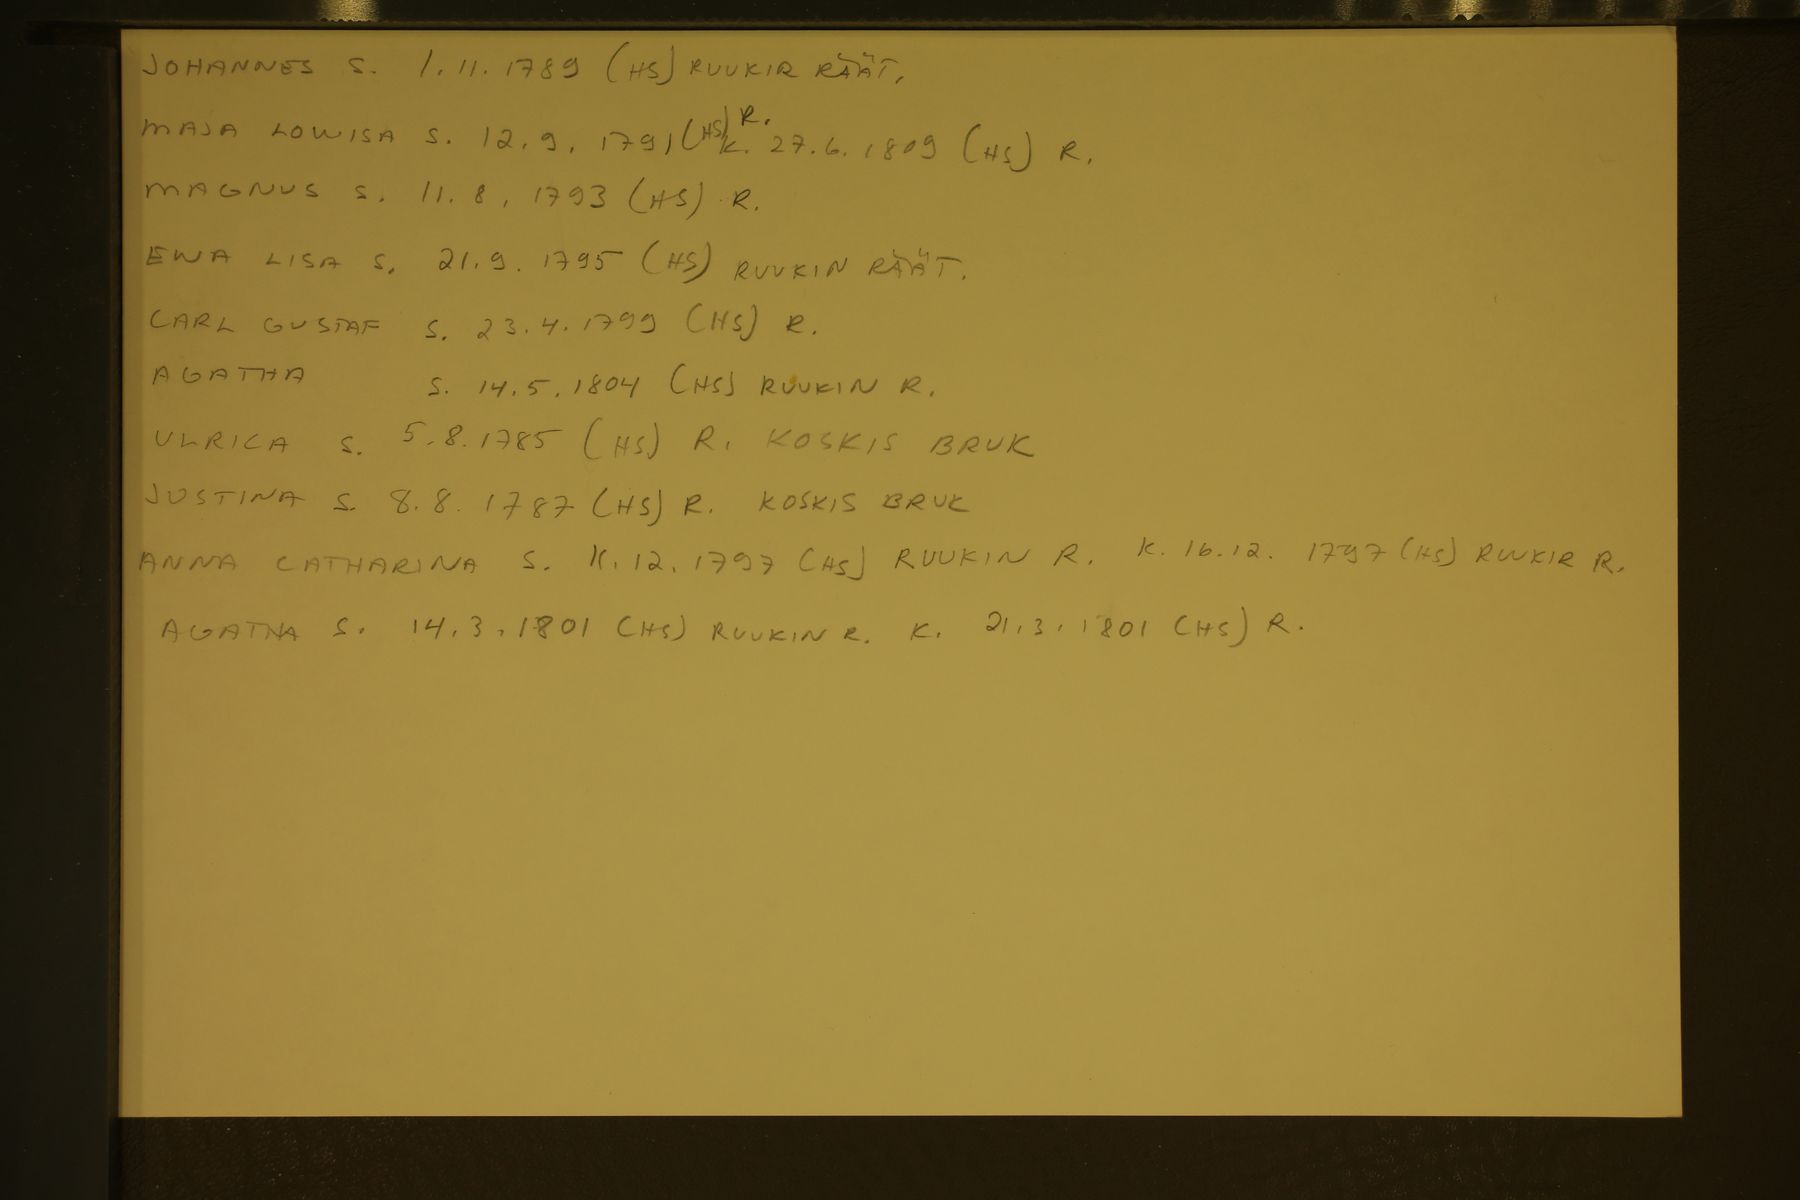 JOHANNES S. 1.11.1789 (HS) RUUKIR RÄÄT.
MAJA LOWISA S. 12.9.1791 (HS) R. K. 27.6.1809 (HS) R.
MAGNUS S. 11.8.1793 (HS) R.
EWA LISA S. 21.9.1795 (HS) RUUKIN RÄÄT.
CARL GUSTAF S. 23.4.1799 (HS) R.
AGATHA S. 14.5.1804 (HS) RUUKIN R.
ULRICA S. 5.8.1785 (HS) R. KOSKIS BRUK
JUSTINA S. 8.8.1787 (HS) R. KOSKIS BRUK
ANNA CATHARINA S. 11.12.1797 (HS) RUUKIN R. K. 16.12.1797 (HS) RUUKIR R.
AGATHA S. 14.3.1801 (HS) RUUKIN R. K. 21.3.1801 (HS) R.